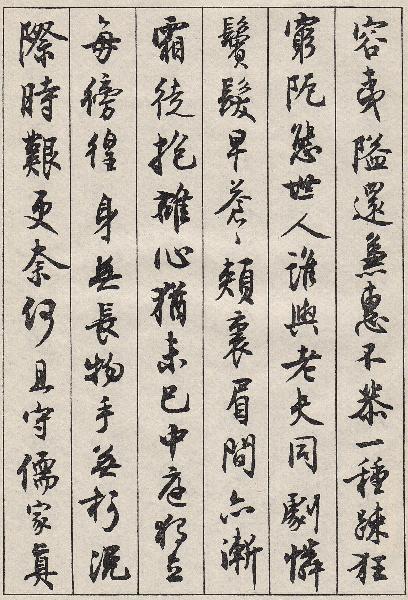 容夷隘還兼惠不恭一種疎狂
窮阨態世人誰與老夫同劇憐
鬢髮早蒼々頰裏眉間亦漸
霜徒抱雄心猶未已中庭獨立
每徬徨身無長物手無柯況
際時艱更奈何且守儒家真